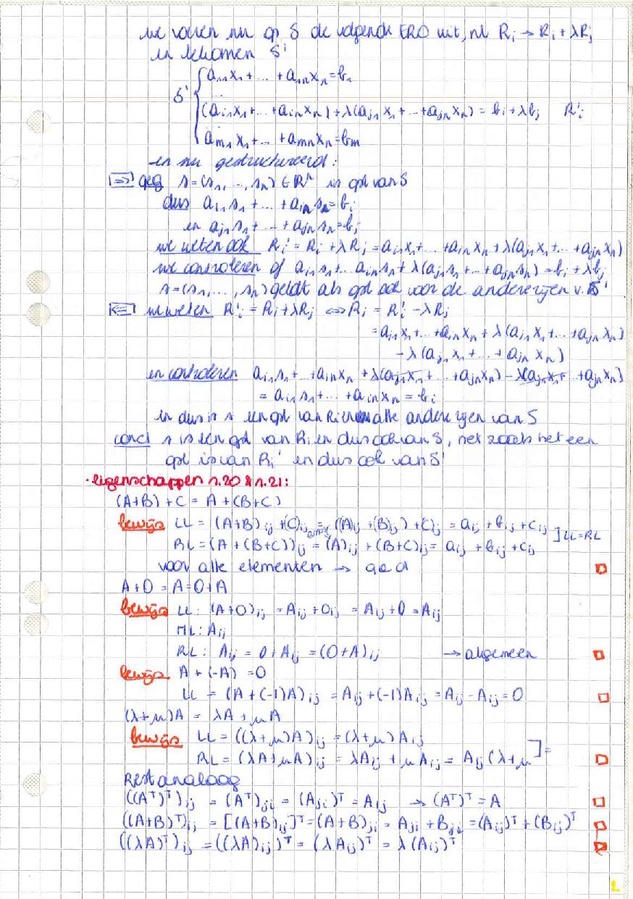 we voeren nu op S de volgende ERO uit, nl Ri → Ri + λRj
en bekomen S'
S' { a11x1 + ... + a1nxn = b1
(ai1x1 + ... + ainxn) + λ(aj1x1 + ... + ajnxn) = bi + λbj R'i
am1x1 + ... + amnxn = bm
en nu gestructureerd:
[=>] geg s = (s1, ..., sn) ∈ ℝⁿ is opl van S
dus ai1s1 + ... + ainsn = bi
en aj1s1 + ... + ajnsn = bj
we weten ook Ri' = Ri + λRj = ai1x1 + ... + ainxn + λ(aj1x1 + ... + ajnxn)
we controleren of ai1s1 + ... ainsn + λ(aj1s1 + ... + ajnsn) = bi + λbj
s = (s1, ..., sn) geldt als opl ook voor de andere rijen v. S'
[<=] we weten R'i = Ri + λRj <=> Ri = R'i - λRj
= ai1x1 + ... + ainxn + λ(aj1x1 + ... + ajnxn)
- λ(aj1x1 + ... + ajnxn)
en controleren ai1s1 + ... + ainxn + λ(aj1x1 + ... + ajnxn) - λ(aj1x1 + ... + ajnxn)
= ai1s1 + ... + ainxn = bi
en dus is s een opl van Ri en alle andere rijen van S
concl s is een opl van Ri en dus ook van S, net zoals het een
opl is van Ri' en dus ook van S'
· eigenschappen 1.20 & 1.21:
(A+B) + C = A + (B+C)
bewijs LL = (A+B)ij + (C)ij = ((A)ij + (B)ij) + (C)ij = aij + bij + cij
RL = (A + (B+C))ij = (A)ij + (B+C)ij = aij + bij + cij ] LL = RL
voor alle elementen → qed □
A + 0 = A = 0 + A
bewijs LL: (A+0)ij = Aij + 0ij = Aij + 0 = Aij
ML: Aij
RL: Aij = 0 + Aij = (0+A)ij → algemeen □
bewijs A + (-A) = 0
LL = (A + (-1)A)ij = Aij + (-1)Aij = Aij - Aij = 0 □
(λ+μ)A = λA + μA
bewijs LL = ((λ+μ)A)ij = (λ+μ)Aij
RL = (λA + μA)ij = λAij + μAij = Aij(λ+μ ] = □
Rest analoog
((Aᵀ)ᵀ)ij = (Aᵀ)ji = (Aji)ᵀ = Aij → (Aᵀ)ᵀ = A □
((A+B)ᵀ)ij = [(A+B)ij]ᵀ = (A+B)ji = Aji + Bji = (Aij)ᵀ + (Bij)ᵀ □
((λA)ᵀ)ij = ((λA)ij)ᵀ = (λAij)ᵀ = λ(Aij)ᵀ □